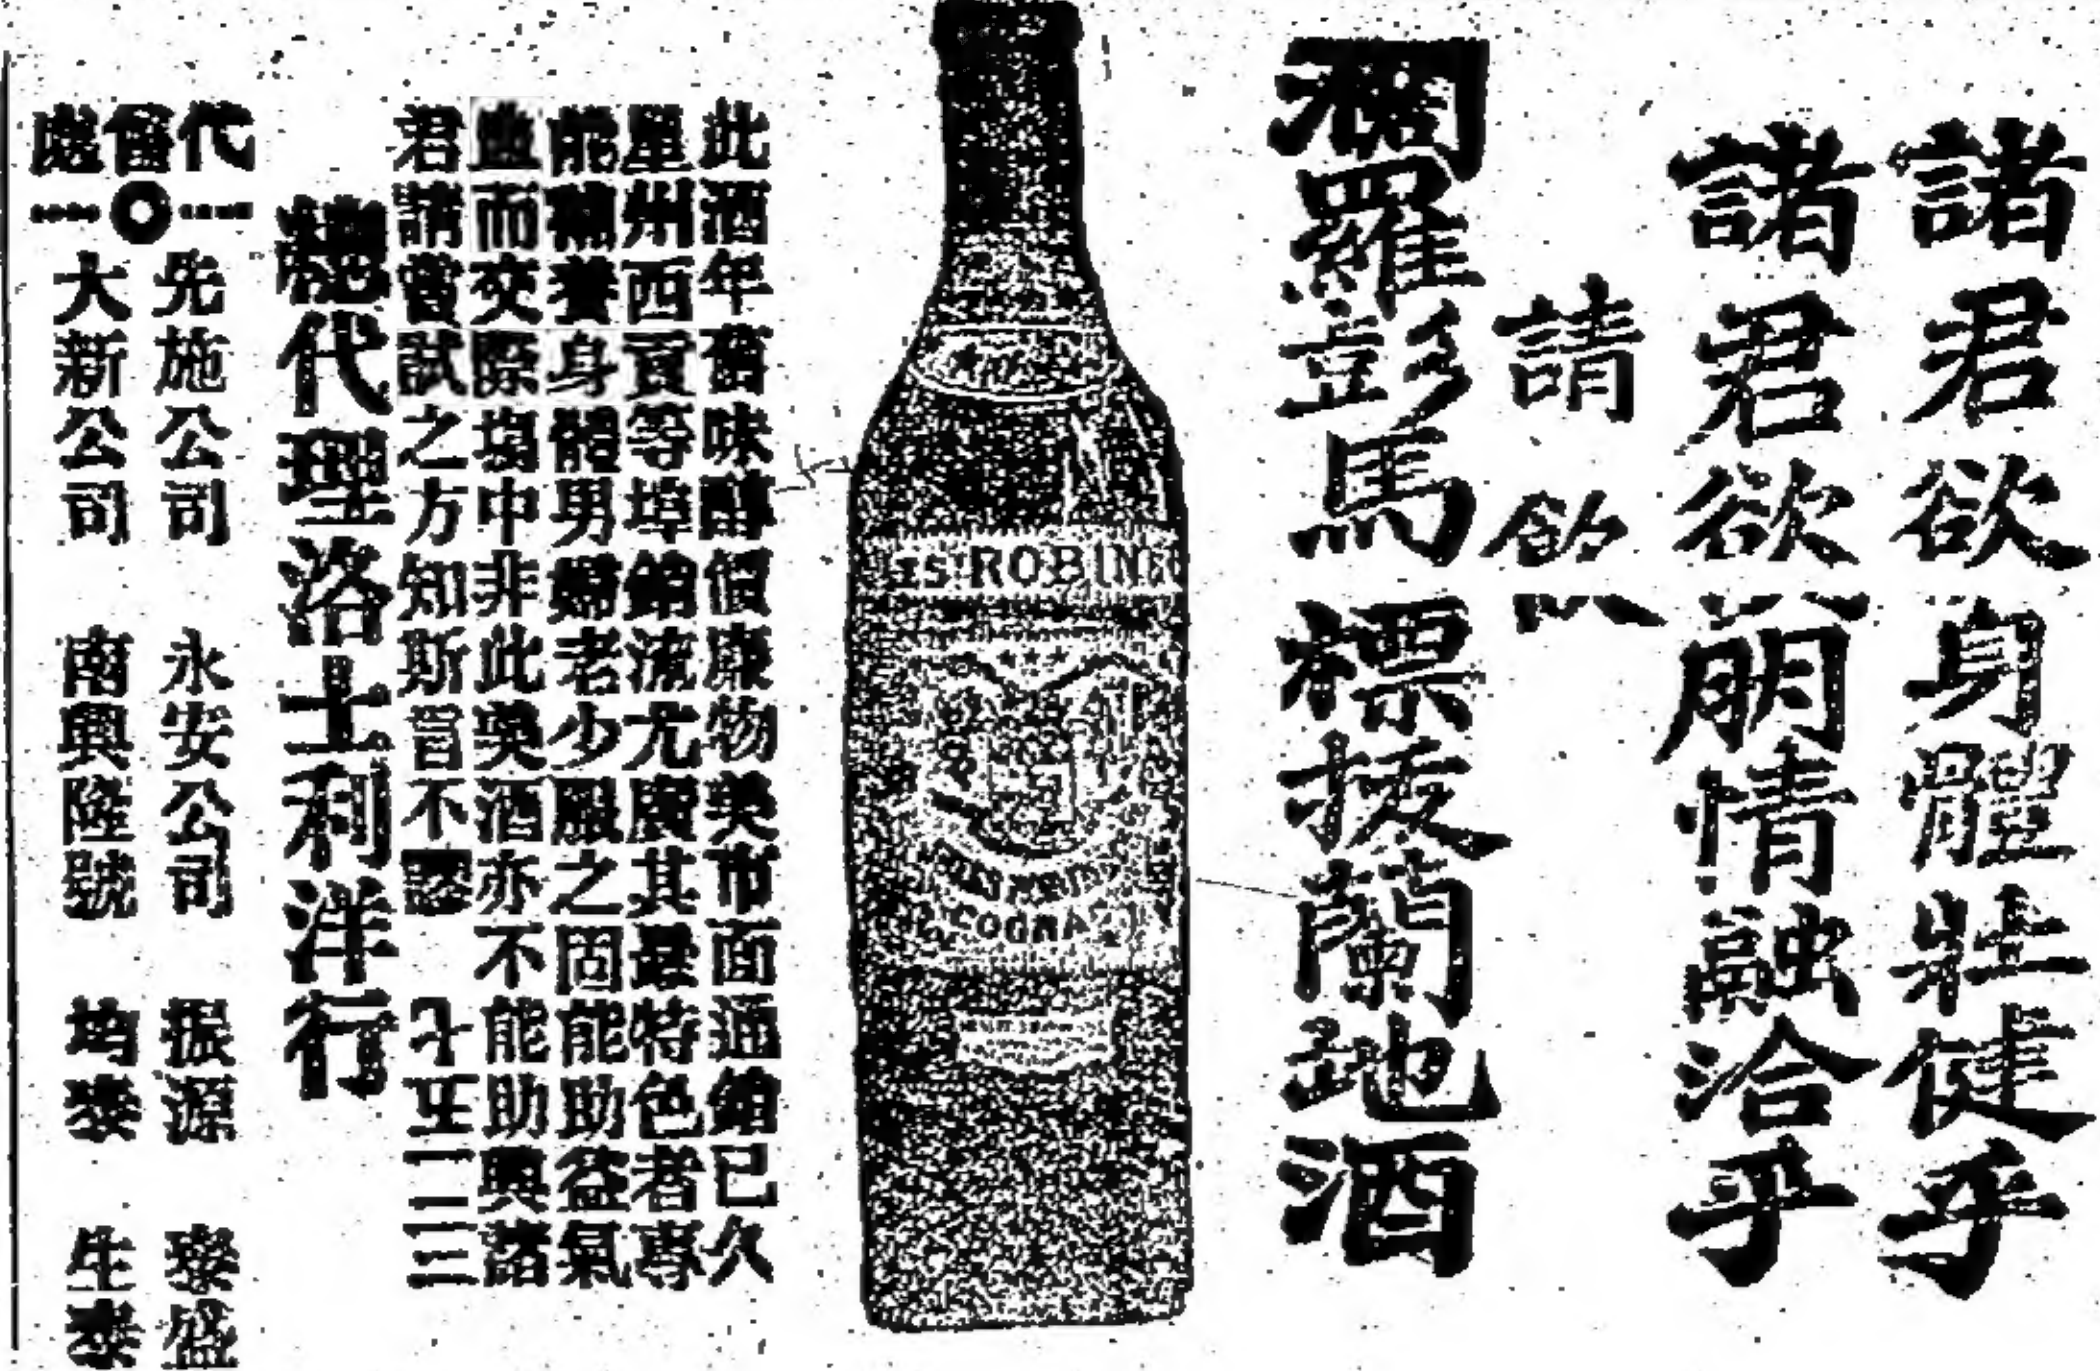 諸君欲身體壯健乎
諸君欲朋情融洽乎
請飲
羅彭馬標拔蘭地酒
ROBIN
COGNAC
此酒年舊味醇價廉物美市面通銷已久
星州西貢等埠銷流尤廣其最特色者專
能補養身體男婦老少服之固能助益氣
血而交際塲中非此奐酒亦不能助興諸
君請嘗試之方知斯言不謬
總代理洛士利洋行
代售處
先施公司 永安公司 振源 泰盛
大新公司 南興隆號 均泰 生泰